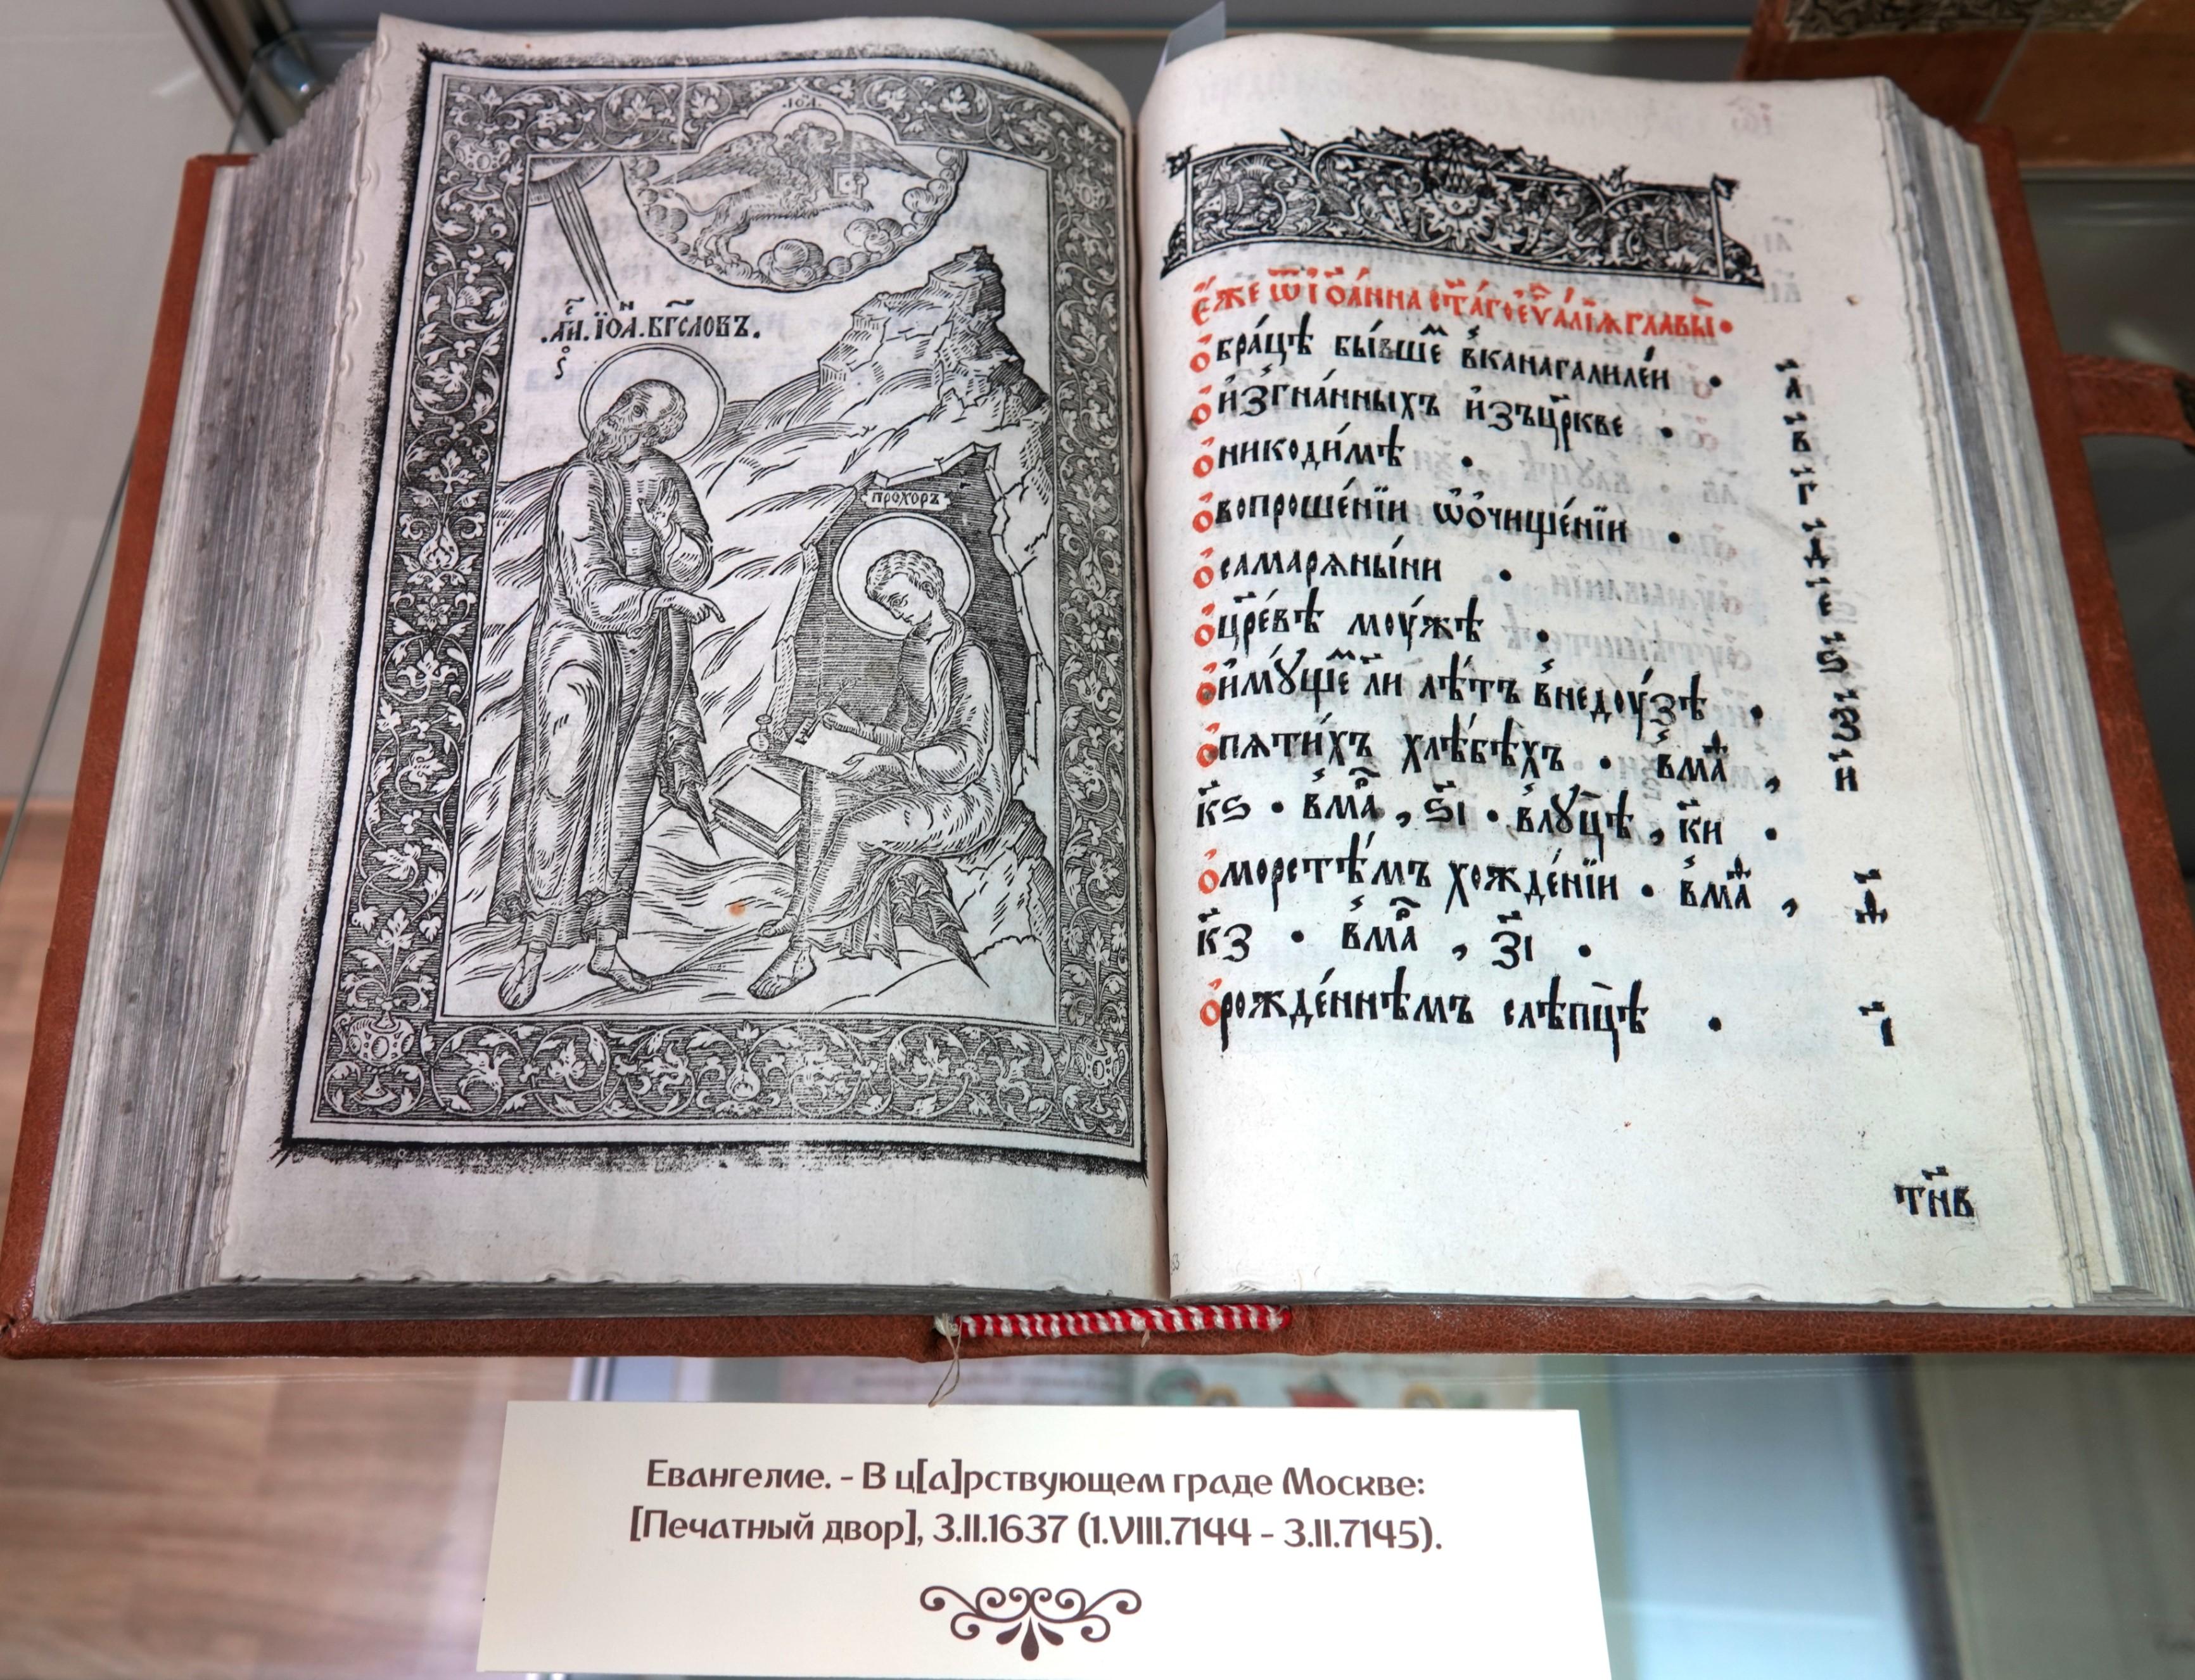 .ІѠА.
.А҆П҃. ЇѠ҃А. БГ҃СЛОВЪ.
ПРОХОРЪ
Е҆́же ѿ і҆ѡа́нна ст҃а́гѡ є҆ѵⷢ҇а́лїѧ главы̀ •
ѡ҆ бра́цѣ бы́вшеⷨ в҆ кана галиле́и • а҃
о҆ и҆згна́нныхъ и҆зъ цр҃кве • в҃
о҆ никоди́мѣ • г҃
о҆ вопроше́нїи ѡ҆ ѡ҆чище́нїи • д҃
о҆ самарѧны́ни • є҃
о҆ цр҃е́вѣ моу́жѣ • ѕ҃
о҆ и҆мꙋ́щеⷨ л҃и лѣ́тъ в҆ недоу́зѣ • з҃
о҆ пѧти́хъ хлѣ́бѣхъ • в҆ маⷴ҇ , и҃
к҃ѕ • в҆ маⷬ҇ , ѕ҃і • в҆ лꙋцѣ̀ , к҃и •
о҆ морстѣ́мъ хожде́нїи • в҆ маⷴ҇ , ѳ҃
к҃з • в҆ маⷬ҇ , з҃і •
о҆ рожде́ннѣмъ слѣпцѣ̀ • і҃
тн҃в
Евангелие. - В ц[а]рствующем граде Москве:
[Печатный двор], 3.II.1637 (1.VIII.7144 - 3.II.7145).